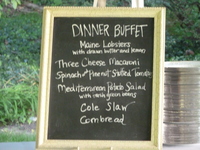 DINNER BUFFET
Maine Lobsters
with drawn butter and lemon
Three Cheese Macaroni
Spinach and Pine nut Stuffed Tomato
Mediterranean Potato Salad
with fresh green beans
Cole Slaw
Cornbread